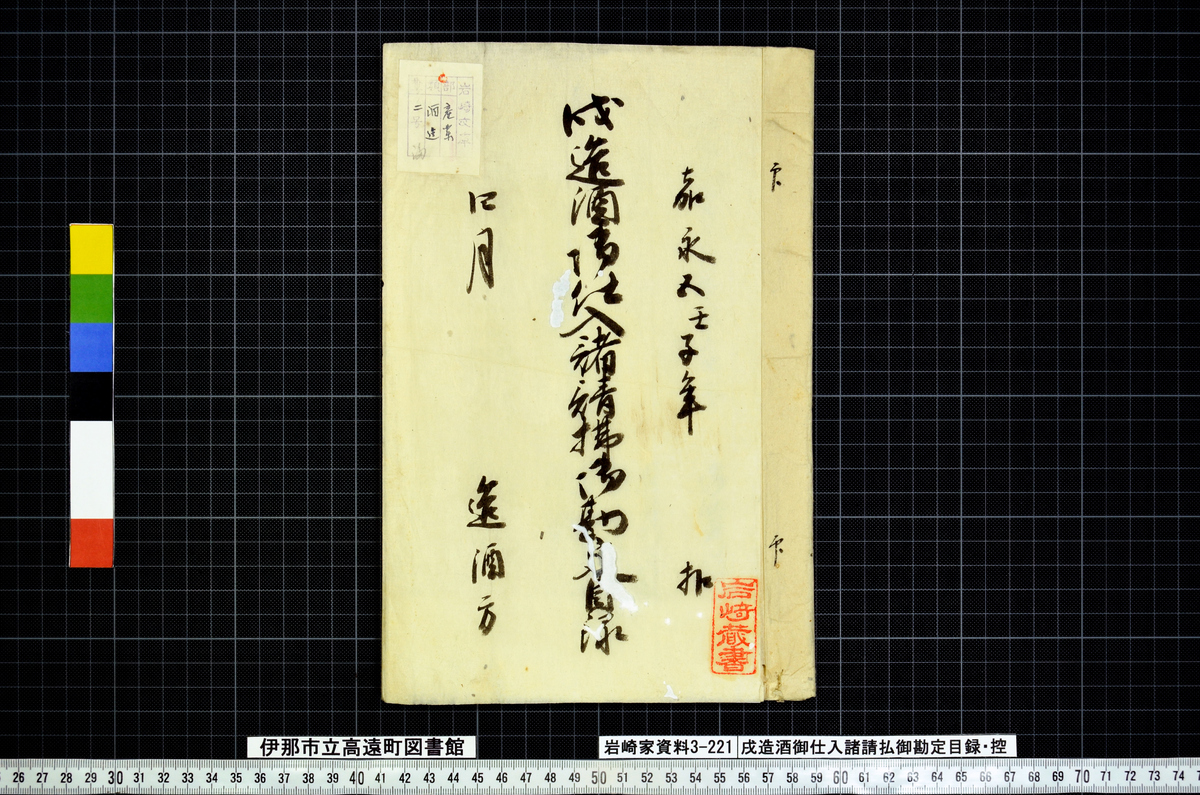 嘉永五壬子年 扣
戌造酒御仕入諸請拂御勘定目録
口月
造酒方
岩崎蔵書
産業
酒造
二
伊那市立高遠町図書館
岩崎家資料3-221
戌造酒御仕入諸請払御勘定目録・控
26 27 28 29 30 31 32 33 34 35 36 37 38 39 40 41 42 43 44 45 46 47 48 49 50 51 52 53 54 55 56 57 58 59 60 61 62 63 64 65 66 67 68 69 70 71 72 73 74